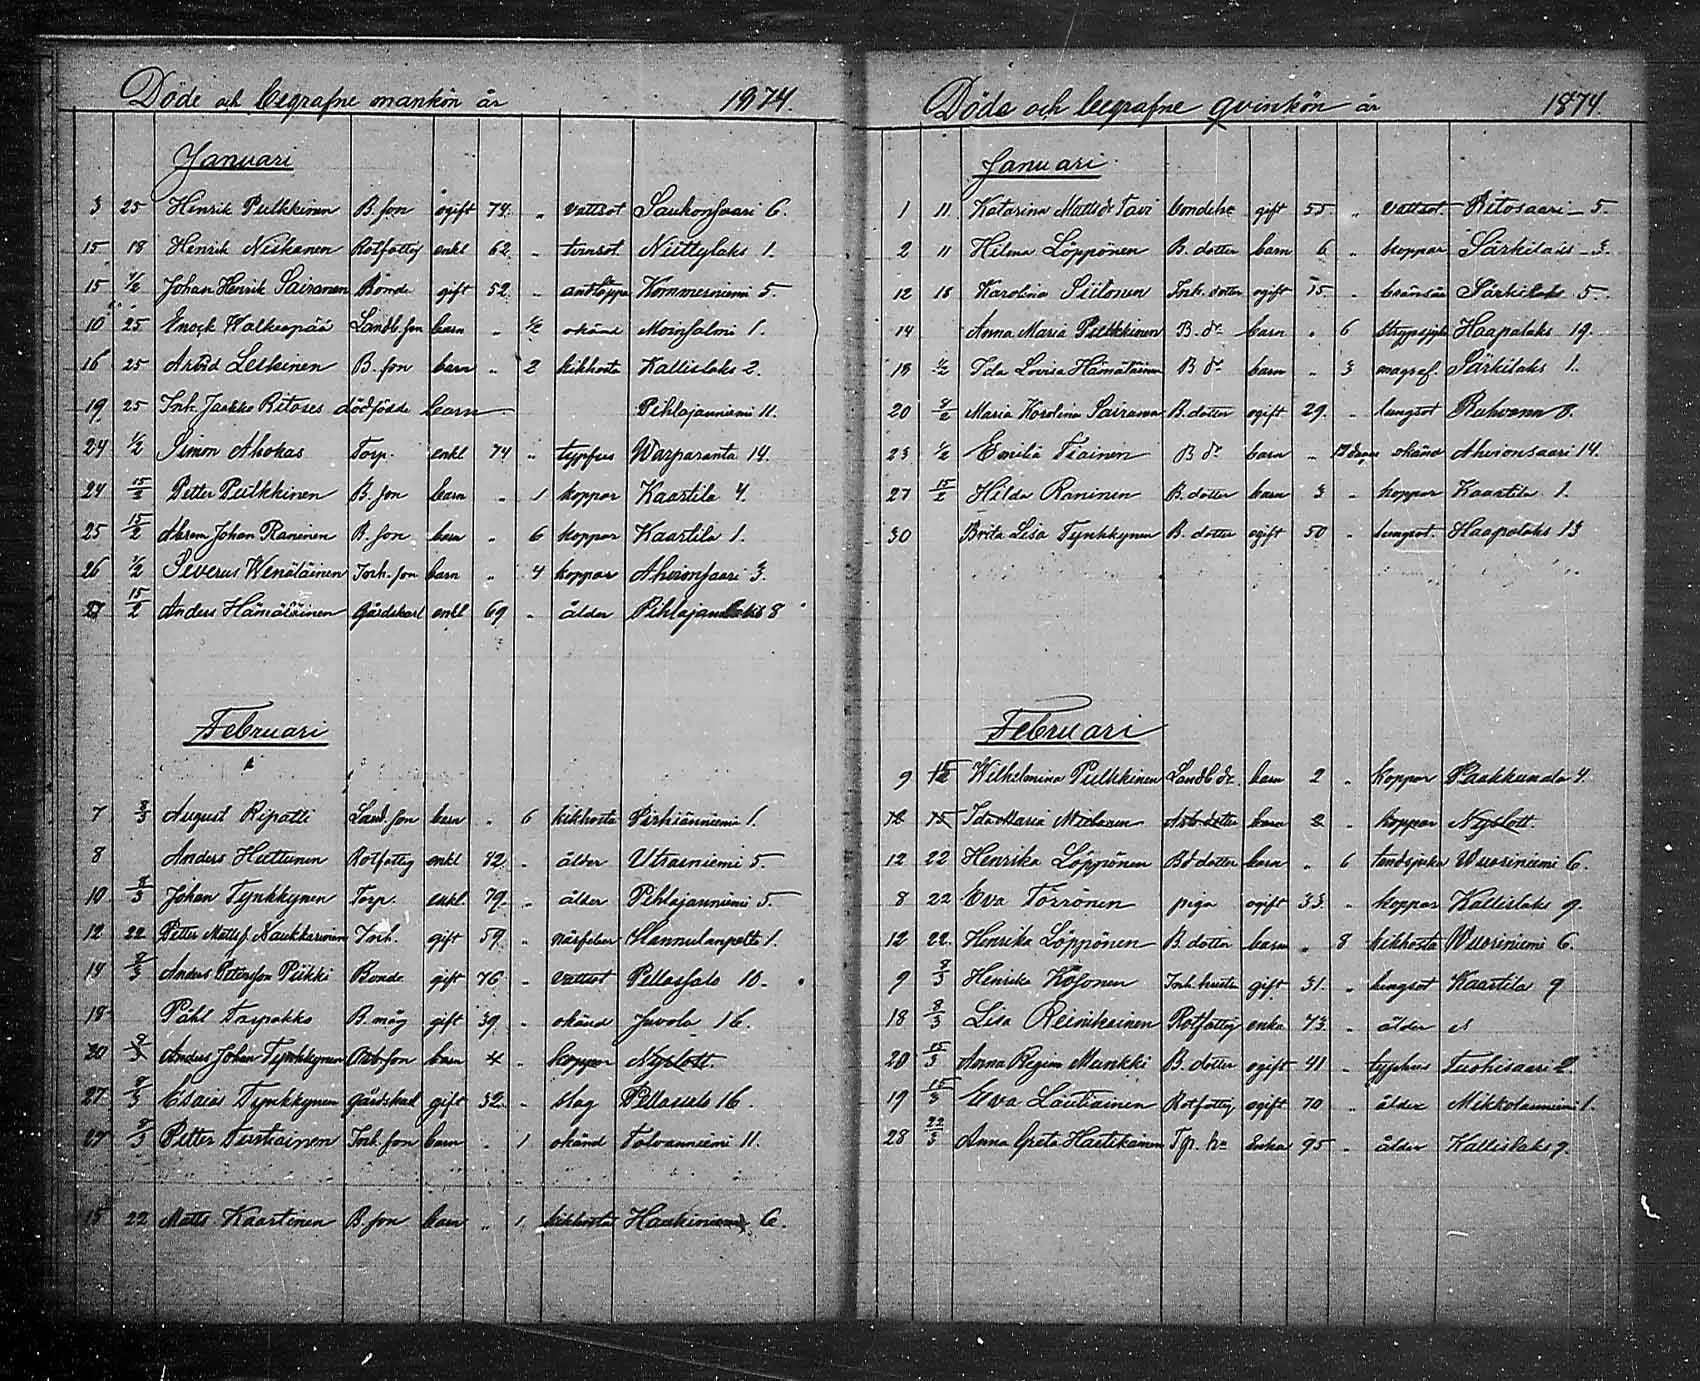 Döde och begrafne mankön år 1874.
Januari
3 25 Henrik Pulkkinen B. son ogift 74. „ vattsot Saukonsaari 6.
15 18 Henrik Niskanen Rotfattig enkl 62 „ tvinsot Niittylaks 1.
15 1/2 Johan Henrik Sairanen Bonde gift 52 „ andtäppa Kommerniemi 5.
10 25 Enock Valkeapää Landb. son barn „ 1/2 okänd Moinsalmi 1.
16 25 Arvid Leskinen B. son barn „ 2 kikhosta Kallislaks 2.
19 25 Inh. Jaakko Ritoses dödfödde barn Pihlajaniemi 11.
24 1/2 Simon Ahokas Torp. enkl 74 „ typfus Warparanta 14.
24 15/2 Petter Pulkkinen B. son barn „ 1 koppor Kaartila 4.
25 15/2 Abram Johan Raninen B. son barn „ 6 koppor Kaartila 1.
26 1/2 Severus Wenäläinen Inh. son barn „ 4 koppor Ahvionsaari 3.
27 15/2 Anders Hämäläinen Gårdskarl enkl 69 „ ålder Pihlajanlaks 8
Februari
7 8/3 August Ripatti Land. son barn „ 6 kikhosta Pirhiänniemi 1.
8 Anders Huttunen Rotfattig enkl 82 „ ålder Utrasniemi 5.
10 8/3 Johan Tynkkynen Torp. enkl. 79. „ ålder Pihlajaniemi 5.
12 22 Petter Mattss. Naukkarinen Inh. gift 59. „ närfeber Hannulanpelto 1.
14 8/3 Anders Petersson Piikki Bonde gift 76 „ vattsot Pellossalo 10.
18 Påhl Torpakko B. måg gift 39 „ okänd Juvola 16.
20 8/3 Anders Johan Tynkkynen Arb. son barn 4 „ koppor Nyslott.
27 8/3 Esaias Tynkkynen gårdskarl gift 32 „ slag Pellossalo 16.
27 8/3 Petter Turtiainen Inh. son barn „ 1 okänd Tolvanniemi 11.
15 22 Matts Kaartinen B. son barn „ 1 kikhosta Haukiniemi 6.
Döde och begrafne qvinkön år 1874.
Januari
1 11 Katarina Mattsdr Tavi bondehu gift 55 „ vattsot. Ritosaari 5.
2 11 Hilma Löppönen B. dotter barn 6 „ koppor Särkilaks 3.
12 18 Karolina Siitonen Inh. dotter ogift 15 „ Särkilaks 5.
14 Anna Maria Pulkkinen B. dr barn „ 6 strypsjuk Haapalaks 19.
18 1/2 Ida Lovisa Hämäläinen B dr barn „ 3 magref. Särkilaks 1.
20 8/2 Maria Karolina Sairanen B. dotter ogift 29. „ lungsot Ruhvana 8.
23 1/2 Emilia Tiainen B dr barn „ dagar okänd Ahvionsaari 14.
27 15/2 Hilda Raninen B. dotter barn 3 „ koppor Kaartila 1.
30 Brita Lisa Tynkkynen B. dotter ogift 50 „ lungsot. Haapalaks 13
Februari
9 15/2 Wilhelmina Pulkkinen Landb. dr. barn 2 „ koppor Paakkunala 4.
12 15 Ida Maria Arb. dotter barn 2 „ koppor Nyslott.
12 22 Henrika Löppönen Bd dotter barn „ 6 tandsjuka Wuoriniemi 6.
8 22 Eva Törrönen piga ogift 33. „ koppor Kallislaks 9.
12 22. Henrika Löppönen B. dotter barn „ 8 kikhosta Wuoriniemi 6.
9 8/3 Henrika Kosonen Inh. hustru gift 31. „ lungsot Kaartila 9
18 8/3 Lisa Reinikainen Rotfattig enka 73. „ ålder
20 15/3 Anna Regina Munkki B. dotter ogift 41 „ typhus Tuohisaari 2.
19 15/3 Eva Lautiainen Rotfattig ogift 70 „ ålder Mikkolanniemi 1.
28 22/3 Anna Greta Hartikainen Tp. ha Enka 95 „ ålder Kallislaks 9.